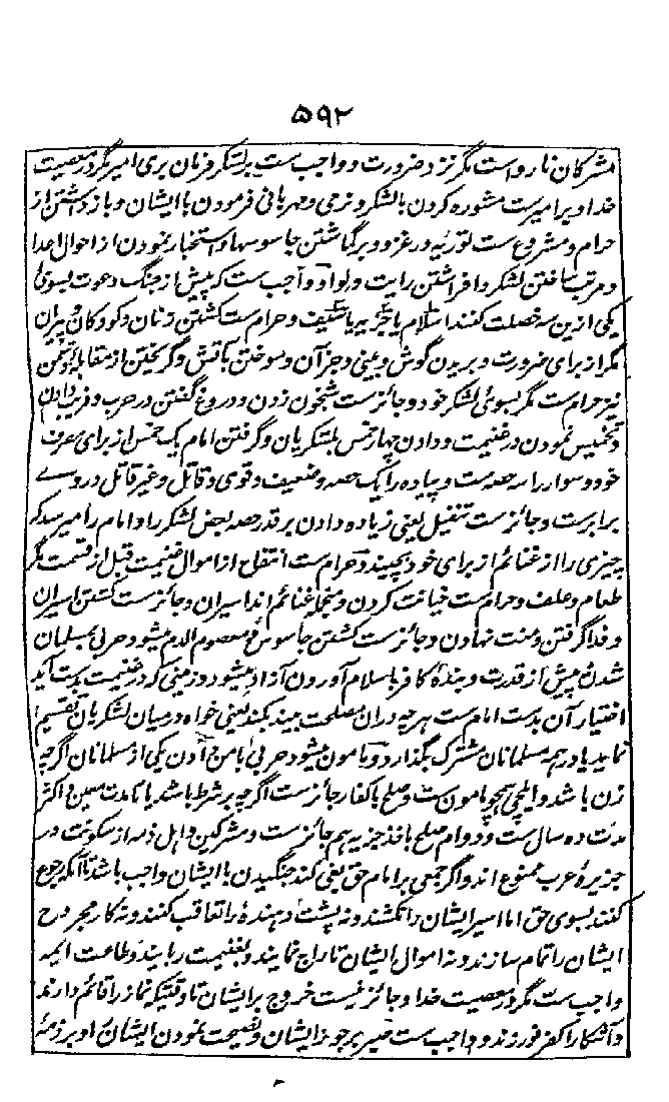 ۵۹۲
مشرکان نارواست مگر نزد ضرورت و واجب ست بر لشکر فرمان بری امیر مگر در معصیت
خدا و بر امیرست مشوره کردن با لشکر و نرمی و مهربانی فرمودن با ایشان و باز داشتن از
حرام و مشروع ست توریه در غزو و برگماشتن جاسوسها و استخبار نمودن از احوال اعدا
و مرتب ساختن لشکر و افراشتن رایت و لوا و واجب ست که پیش از جنگ دعوت بسوی
یکی ازین سه خصلت کنند اسلام یا جزیه یا سیف و حرام ست کشتن زنان و کودکان و پیران
مگر از برای ضرورت و بریدن گوش و بینی و جز آن و سوختن بآتش و گریختن از مقابلهٔ دشمن
نیز حرام ست مگر بسوی لشکر خود و جائز ست شبخون زدن و دروغ گفتن در حرب و فریب دادن
و تخمیس نمودن در غنیمت و دادن چهار خمس بلشکریان و گرفتن امام یک خمس از برای صرف
خود و سوار را سه حصه ست و پیاده را یک حصه و ضعیف و قوی و قاتل و غیر قاتل در وے
برابرست و جائز ست تنفیل یعنی زیاده دادن بر قدر حصه بعض لشکر را و امام را میرسد که
چیزی را از غنائم از برای خود بچیند و حرام ست انتفاع از اموال غنیمت قبل از قسمت مگر
طعام و علف و حرام ست خیانت کردن و منجمله غنائم اند اسیران و جائز ست کشتن اسیران
و فدا گرفتن و منت نهادن و جائز ست کشتن جاسوس و معصوم الدم میشود حربی بمسلمان
شدن پیش از قدرت و بندهٔ کافر باسلام آوردن آزاد میشود و زمینی که در غنیمت بدست آید
اختیار آن بدست امام ست هرچه در آن مصلحت بیند بکند یعنی خواه در میان لشکریان تقسیم
نماید یا در همه مسلمانان مشترک بگذارد و مامون میشود حربی بامن دادن یکی از مسلمانان اگرچه
زن باشد و ایلچی همچو مامون ست و صلح با کفار جائز ست اگرچه بر شرط باشد یا تا مدت معین و اکثر
مدت ده سال ست و دوام صلح باخذ جزیه هم جائز ست و مشرکین و اهل ذمه از سکونت در
جزیرهٔ عرب ممنوع اند و اگر جمعی بر امام حق بغی کند جنگیدن با ایشان واجب باشد تا آنکه رجوع
کنند بسوی حق اما اسیر ایشان را نکشند و نه پشت دهنده را تعاقب کنند و نه کار مجروح
ایشان را تمام سازند و نه اموال ایشان تاراج نمایند و بغنیمت ربایند و طاعت ائمه
واجب ست مگر در معصیت خدا و جائز نیست خروج بر ایشان تا وقتیکه نماز را قائم دارند
و آشکارا کفر نورزند و واجب ست صبر بر جور ایشان و نصیحت نمودن ایشان را و بر ذمهٔ